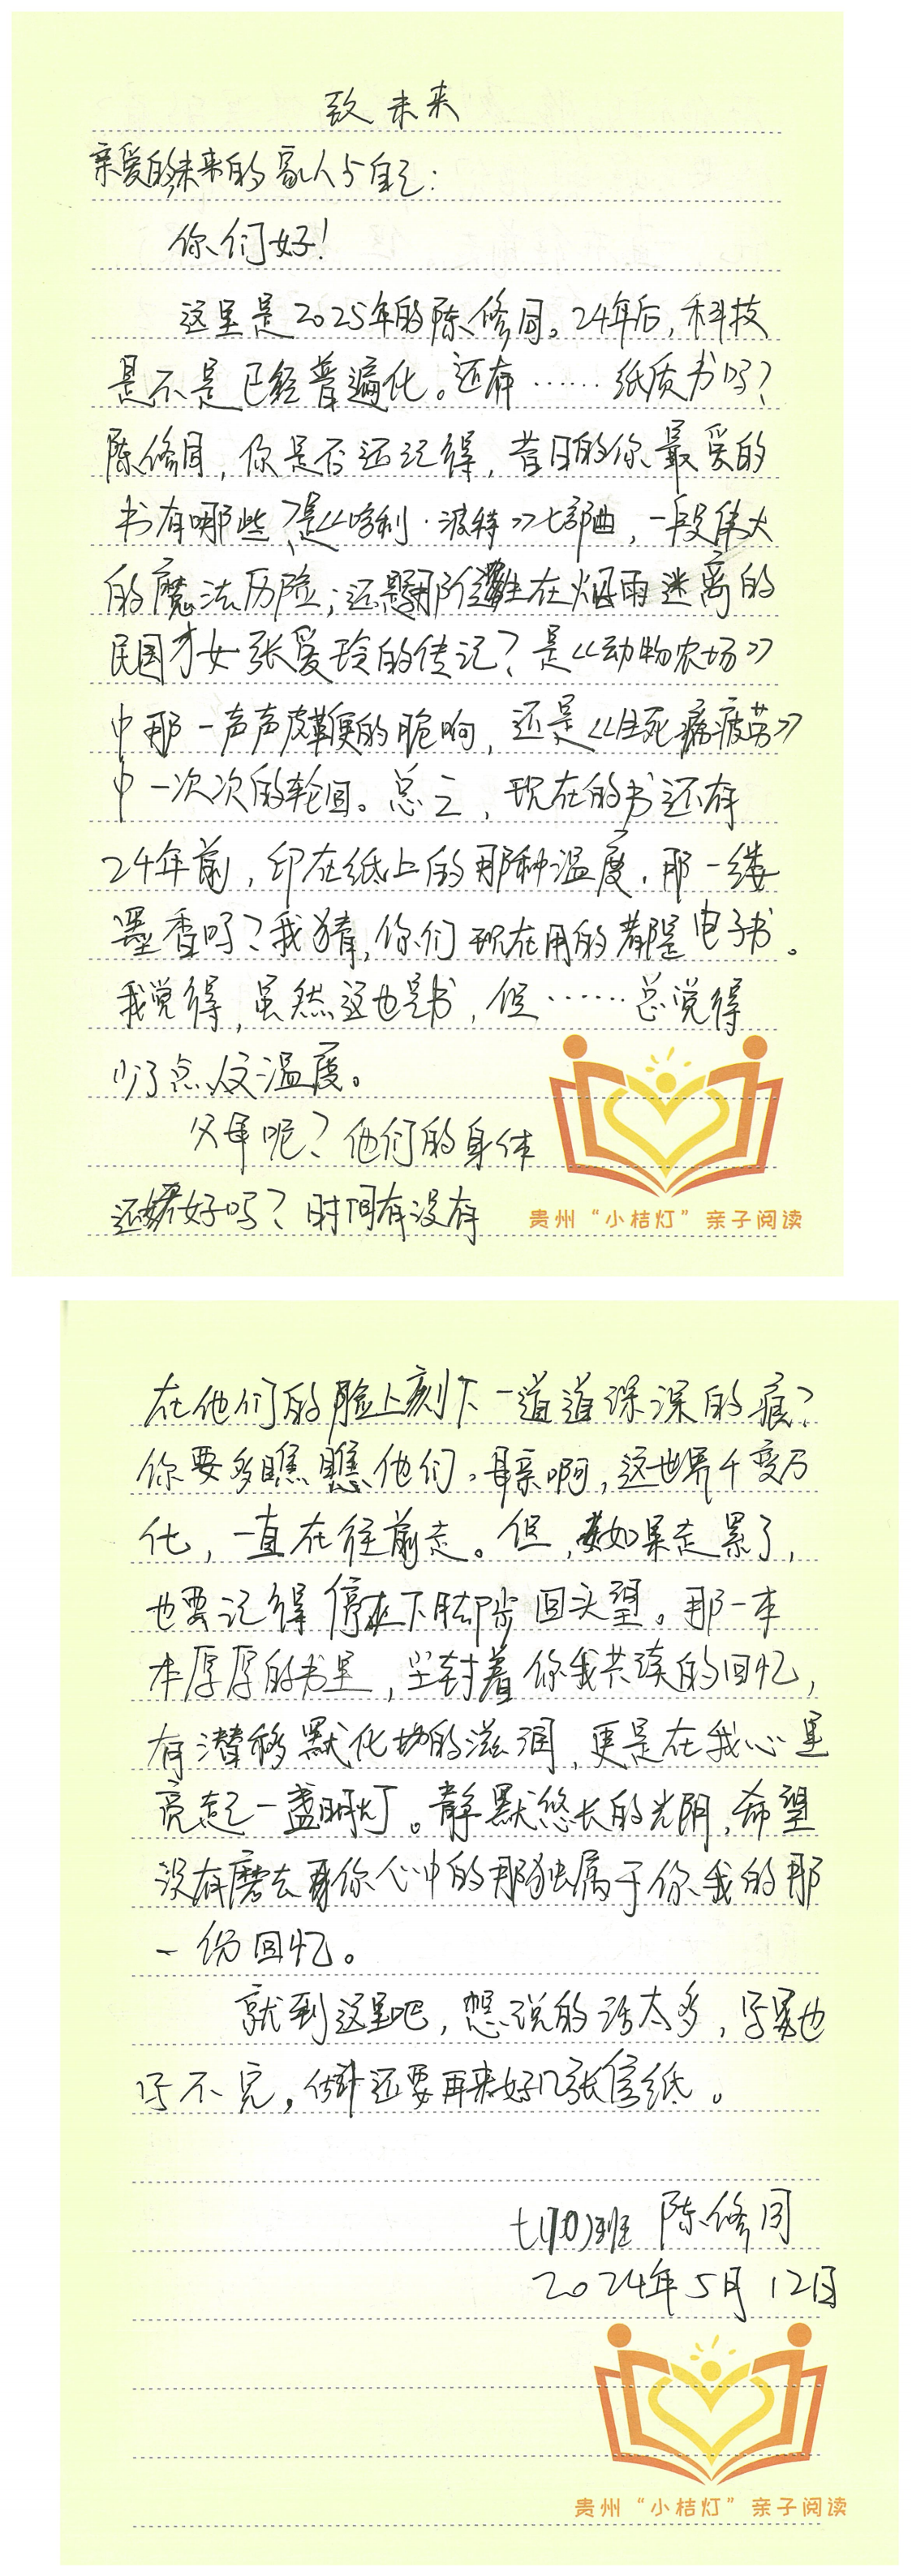 致未来
亲爱的未来的家人与自己:
你们好!
这里是2025年的陈修同。24年后,科技
是不是已经普遍化。还有……纸质书吗?
陈修同,你是否还记得,昔日的你最爱的
书有哪些?是《哈利·波特》七部曲,一段伟大
的魔法历险;还是那位在烟雨迷离的
民国才女张爱玲的传记?是《动物农场》
中那一声声皮鞭的脆响,还是《生死疲劳》
中一次次的轮回。总之,现在的书还有
24年前,印在纸上的那种温度,那一缕
墨香吗?我猜,你们现在用的都是电子书。
我觉得,虽然这也是书,但……总觉得
少了点温度。
父母呢?他们的身体
还好吗?时间有没有
贵州“小桔灯”亲子阅读
在他们的脸上刻下一道道深深的痕?
你要多瞧瞧他们。啊,这世界千变万
化,一直在往前走。但,如果走累了,
也要记得停下脚步回头望。那一本
本厚厚的书里,尘封着你我共读的回忆,
有潜移默化的滋润,更是在我心里
亮起一盏明灯。静默悠长的光阴,希望
没有磨去你心中的那独属于你我的那
一份回忆。
就到这里吧,想说的话太多,写也
写不完,估计还要再来好几张信纸。
七(10)班 陈修同
2024年5月12日
贵州“小桔灯”亲子阅读